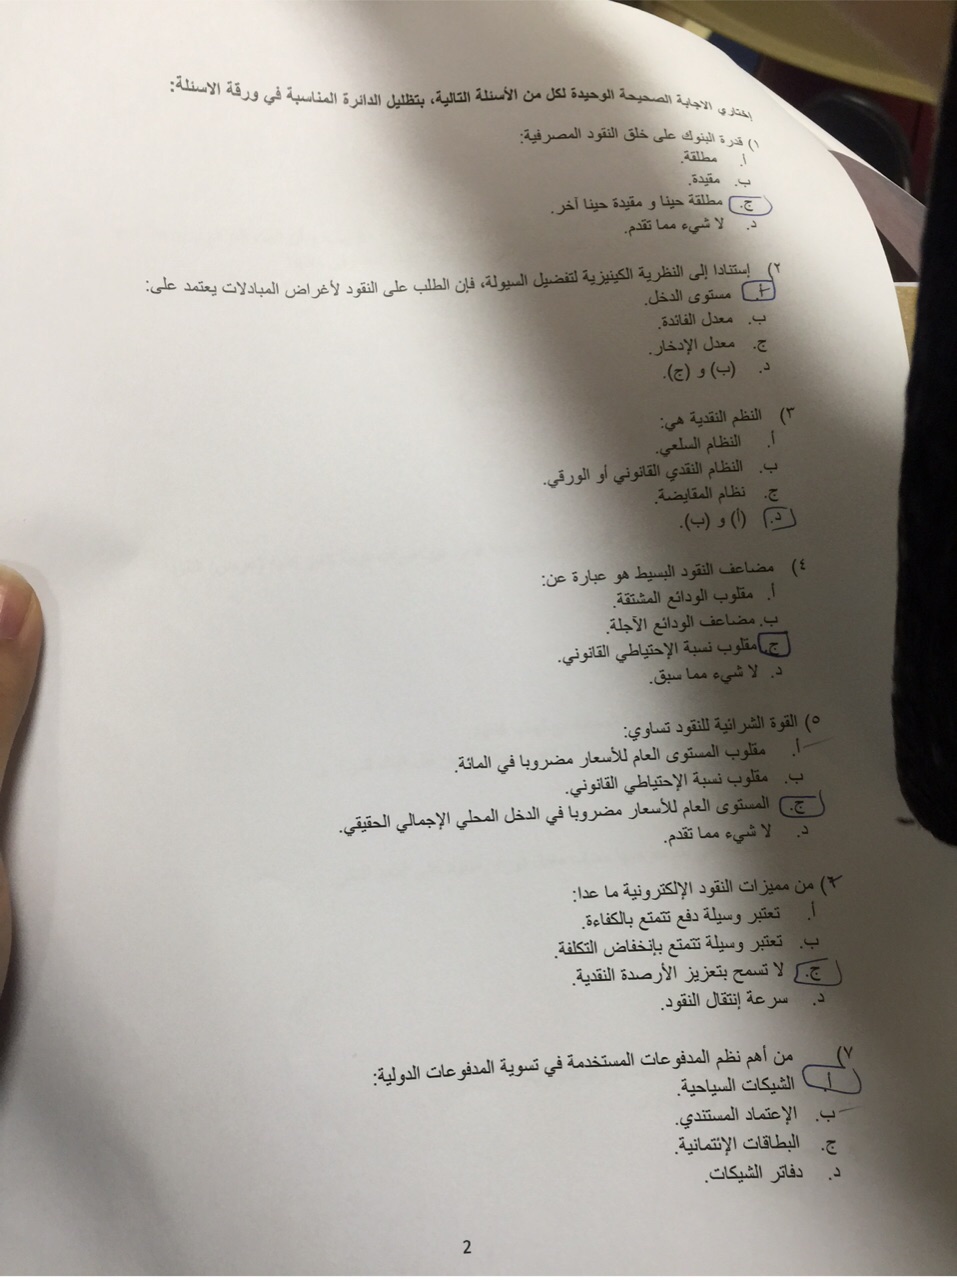 إختاري الاجابة الصحيحة الوحيدة لكل من الأسئلة التالية، بتظليل الدائرة المناسبة في ورقة الاسئلة:
١) قدرة البنوك على خلق النقود المصرفية:
أ. مطلقة.
ب. مقيدة.
ج. مطلقة حينا و مقيدة حينا آخر.
د. لا شيء مما تقدم.
٢) إستنادا إلى النظرية الكينيزية لتفضيل السيولة، فإن الطلب على النقود لأغراض المبادلات يعتمد على:
أ. مستوى الدخل.
ب. معدل الفائدة.
ج. معدل الإدخار.
د. (ب) و (ج).
٣) النظم النقدية هي:
أ. النظام السلعي.
ب. النظام النقدي القانوني أو الورقي.
ج. نظام المقايضة.
د. (أ) و (ب).
٤) مضاعف النقود البسيط هو عبارة عن:
أ. مقلوب الودائع المشتقة.
ب. مضاعف الودائع الآجلة.
ج. مقلوب نسبة الإحتياطي القانوني.
د. لا شيء مما سبق.
٥) القوة الشرائية للنقود تساوي:
أ. مقلوب المستوى العام للأسعار مضروبا في المائة.
ب. مقلوب نسبة الإحتياطي القانوني.
ج. المستوى العام للأسعار مضروبا في الدخل المحلي الإجمالي الحقيقي.
د. لا شيء مما تقدم.
٦) من مميزات النقود الإلكترونية ما عدا:
أ. تعتبر وسيلة دفع تتمتع بالكفاءة.
ب. تعتبر وسيلة تتمتع بإنخفاض التكلفة.
ج. لا تسمح بتعزيز الأرصدة النقدية.
د. سرعة إنتقال النقود.
٧) من أهم نظم المدفوعات المستخدمة في تسوية المدفوعات الدولية:
أ. الشيكات السياحية.
ب. الإعتماد المستندي.
ج. البطاقات الإئتمانية.
د. دفاتر الشيكات.
2